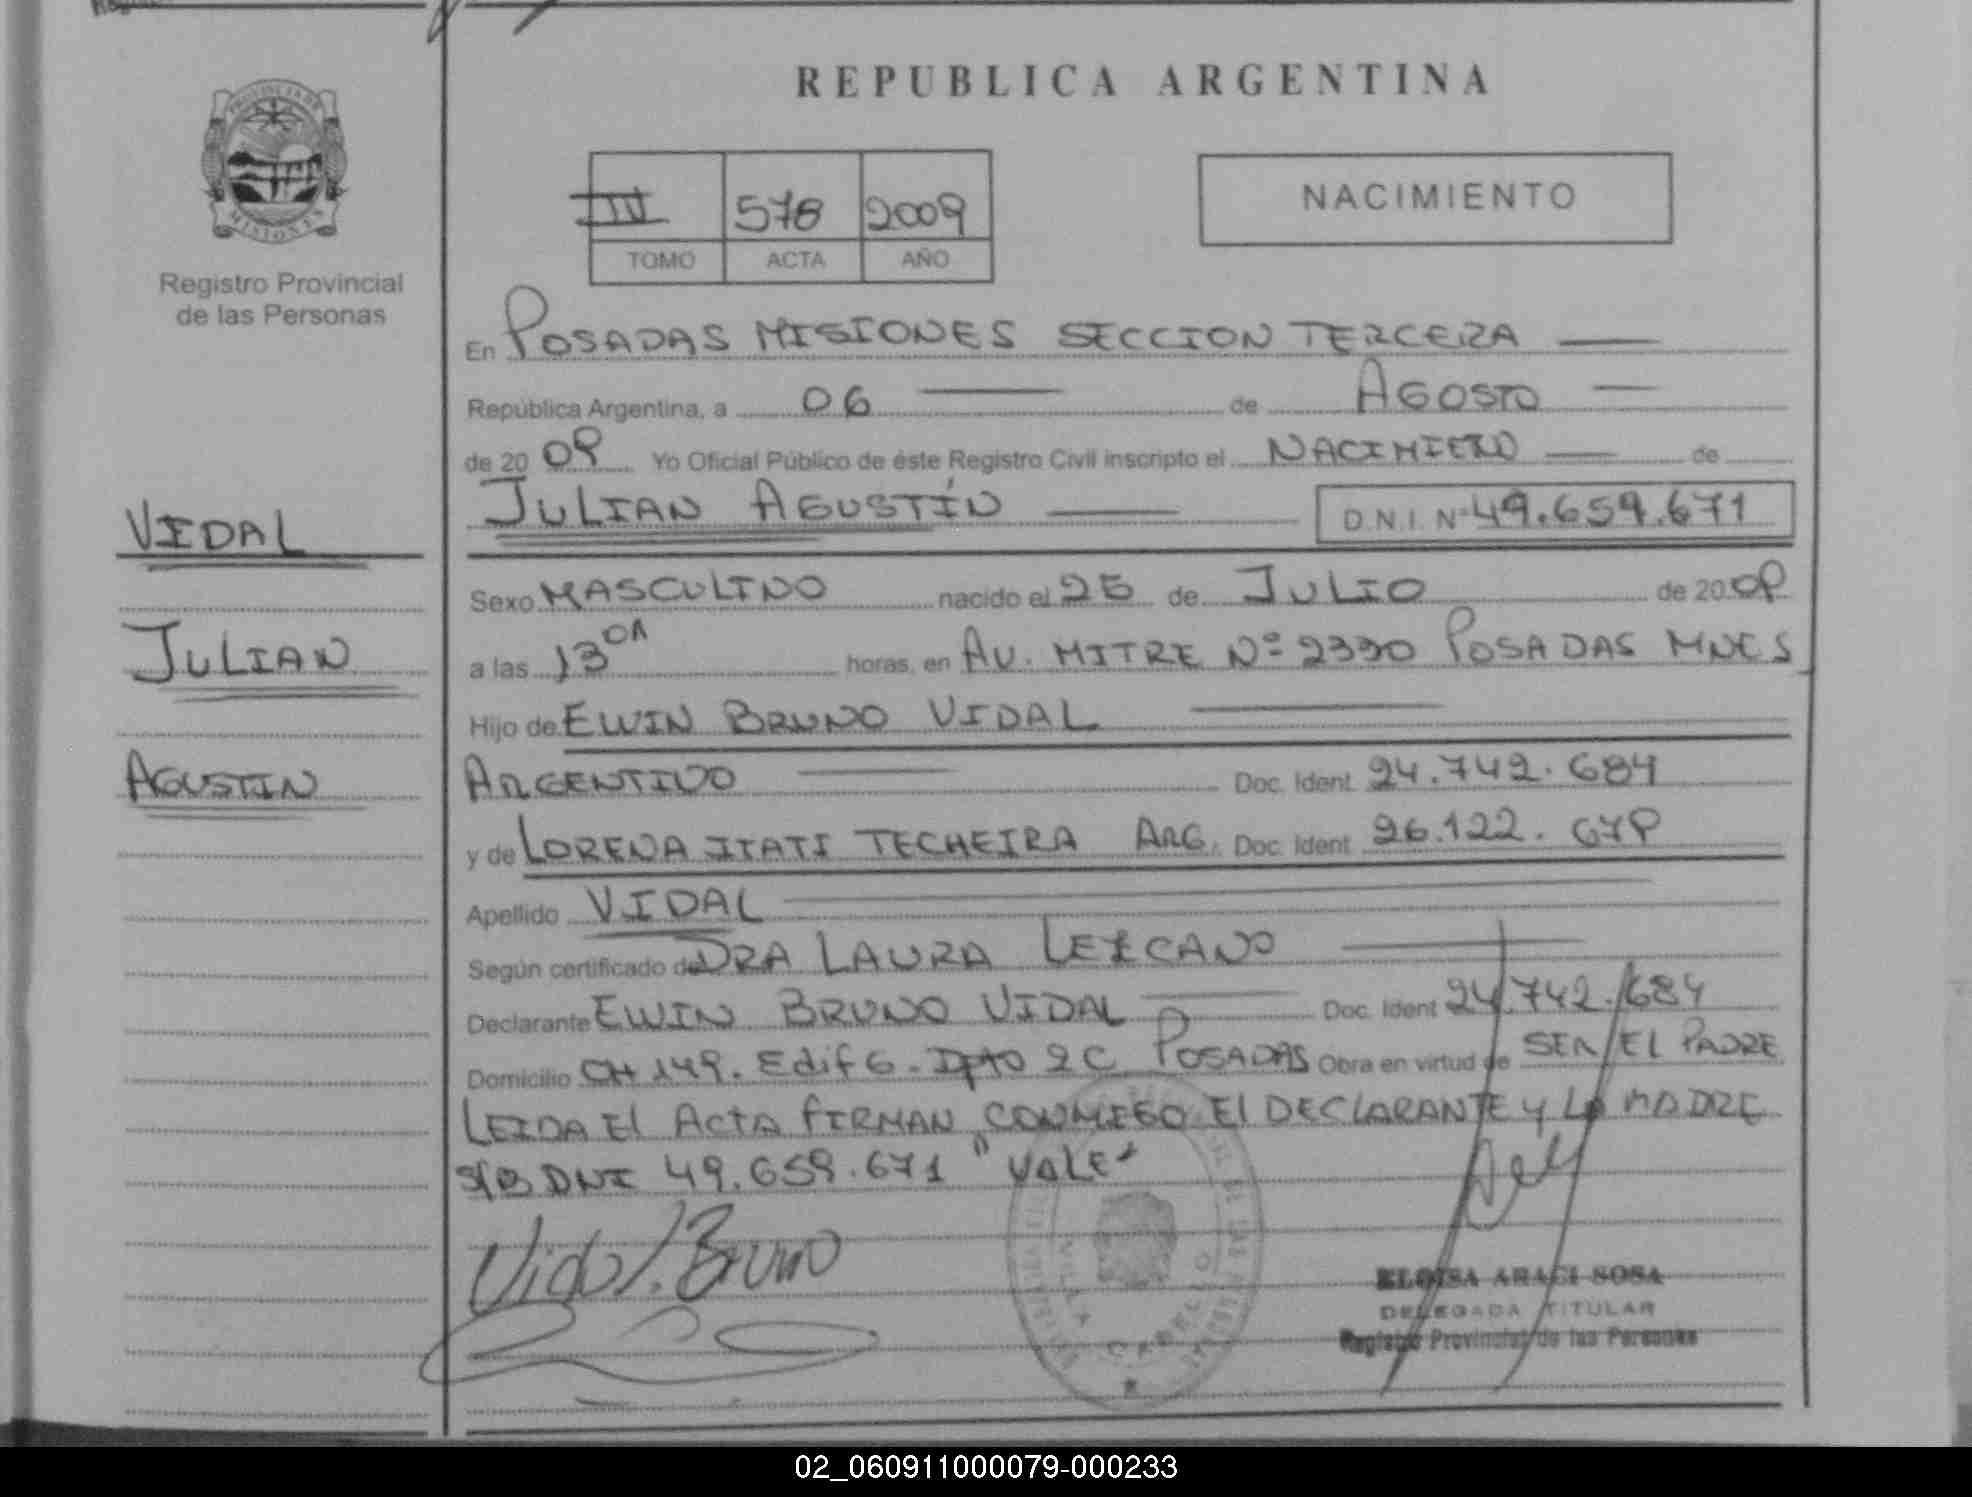 REPUBLICA ARGENTINA
PROVINCIA DE
MISIONES
Registro Provincial
de las Personas
III 578 2009
TOMO ACTA AÑO
NACIMIENTO
En POSADAS MISIONES SECCION TERCERA
República Argentina, a 06 de AGOSTO
de 20 09 Yo Oficial Público de éste Registro Civil inscripto el NACIMIENTO de
JULIAN AGUSTÍN D.N.I. Nº 49.659.671
VIDAL
JULIAN
AGUSTIN
Sexo MASCULINO nacido el 25 de JULIO de 20 09
a las 13 horas, en AV. MITRE Nº 2330 POSADAS MNES
Hijo de EWIN BRUNO VIDAL
ARGENTINO Doc. Ident. 24.742.684
y de LORENA ITATI TECHEIRA ARG. Doc. Ident. 26.122.679
Apellido VIDAL
Según certificado de DRA LAURA LEZCANO
Declarante EWIN BRUNO VIDAL Doc. Ident 24.742.684
Domicilio CH 149. Edif 6. Dpto 2C POSADAS Obra en virtud de SER EL PADRE
LEIDA El ACTA FIRMAN CONMIGO El DECLARANTE y LA MADRE
S/B DNI 49.659.671 "VALE"
Vidal. Bruno
VILLA CABELLO
ELOISA ARACI SOSA
DELEGADA TITULAR
Registro Provincial de las Personas
02_060911000079-000233